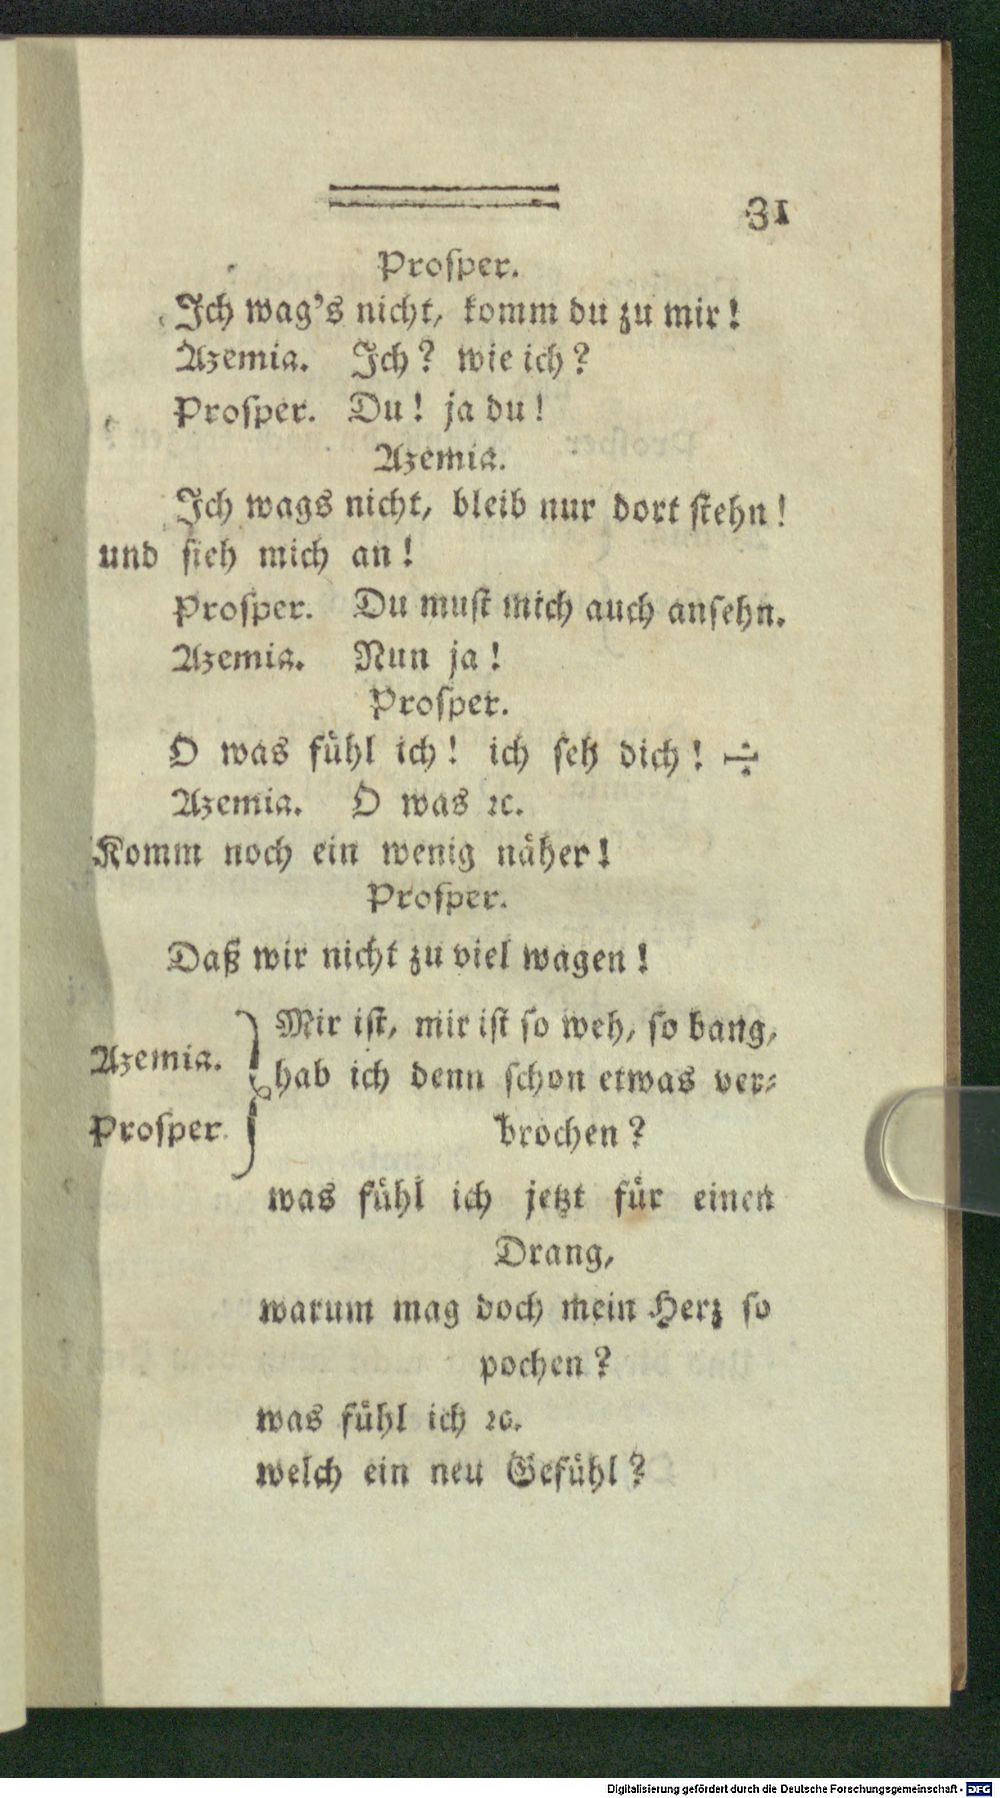 31
Proſper.
Ich wag's nicht, komm du zu mir!
Azemia. Ich? wie ich?
Proſper. Du! ja du!
Azemia.
Ich wags nicht, bleib nur dort ſtehn!
und ſieh mich an!
Proſper. Du muſt mich auch anſehn.
Azemia. Nun ja!
Proſper.
O was fühl ich! ich ſeh dich! ÷
Azemia. O was ꝛc.
Komm noch ein wenig näher!
Proſper.
Daß wir nicht zu viel wagen!
Mir iſt, mir iſt ſo weh, ſo bang,
Azemia.
hab ich denn ſchon etwas ver⸗
Proſper.
brochen?
was fühl ich jetzt für einen
Drang,
warum mag doch mein Herz ſo
pochen?
was fühl ich ꝛc.
welch ein neu Gefühl?
Digitalisierung gefördert durch die Deutsche Forschungsgemeinschaft - DFG